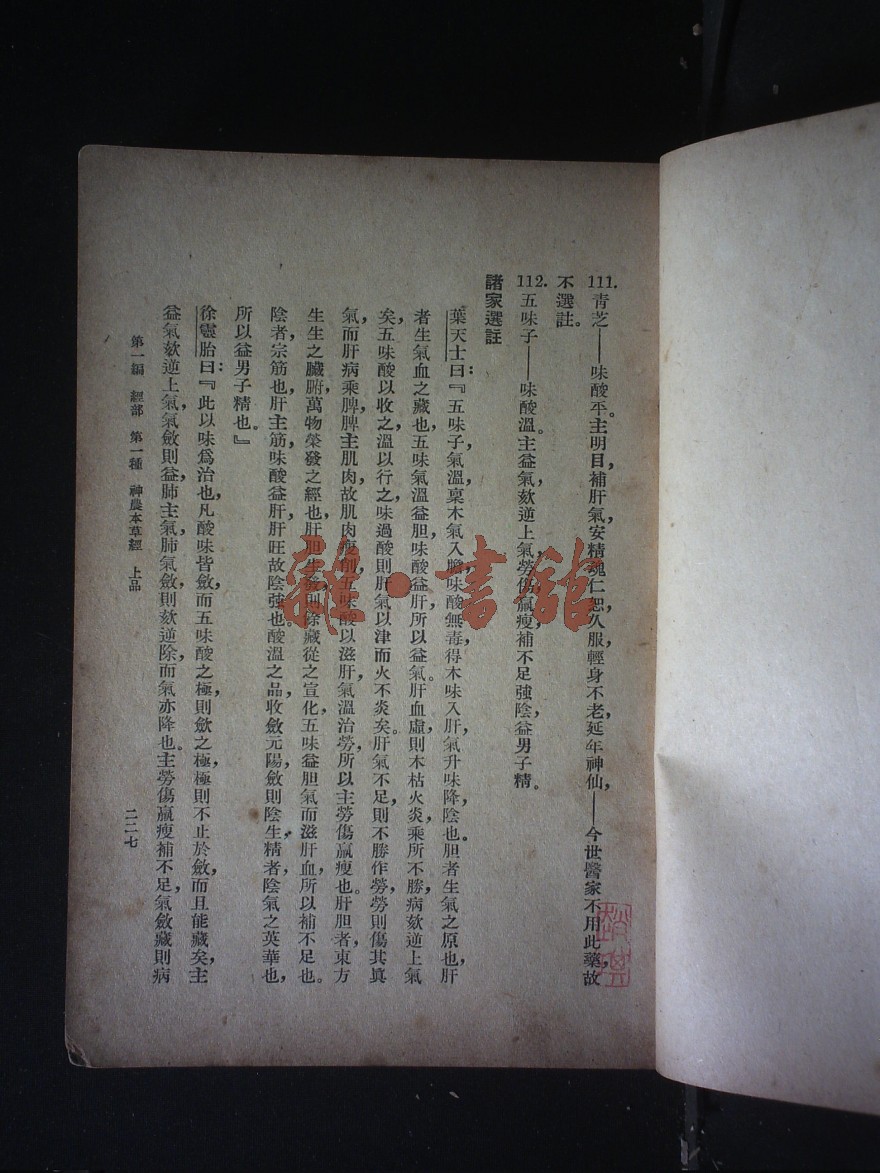 111. 青芝——味酸平。主明目，補肝氣，安精魂，仁恕，久服，輕身不老，延年神仙，——今世醫家不用此藥，故
不選註。
112. 五味子——味酸溫。主益氣，欬逆上氣，勞傷羸瘦，補不足，強陰，益男子精。
諸家選註
葉天士曰：『五味子，氣溫，稟木氣入膽，味酸無毒，得木味入肝，氣升味降，陰也。胆者生氣之原也，肝
者生氣血之藏也，五味氣溫益胆，味酸益肝，所以益氣。肝血虛，則木枯火炎，乘所不勝，病欬逆上氣
矣，五味酸以收之，溫以行之，味過酸則肝氣以津而火不炎矣。肝氣不足，則不勝作勞，勞則傷其真
氣，而肝病乘脾，脾主肌肉，故肌肉瘦削，五味酸以滋肝，氣溫治勞，所以主勞傷羸瘦也。肝胆者，東方
生生之臟腑，萬物榮發之經也，肝胆生發，則餘藏從之宣化，五味益胆氣而滋肝血，所以補不足也。
陰者，宗筋也，肝主筋，味酸益肝，肝旺故陰強也。酸溫之品，收斂元陽，斂則陰生，精者，陰氣之英華也，
所以益男子精也。』
徐靈胎曰：『此以味爲治也，凡酸味皆斂，而五味酸之極，則斂之極，極則不止於斂，而且能藏矣，主
益氣欬逆上氣，氣斂則益，肺主氣，肺氣斂，則欬逆除，而氣亦降也。主勞傷羸瘦補不足，氣斂藏則病
第一編 經部 第一種 神農本草經 上品
二二七
雜·書館